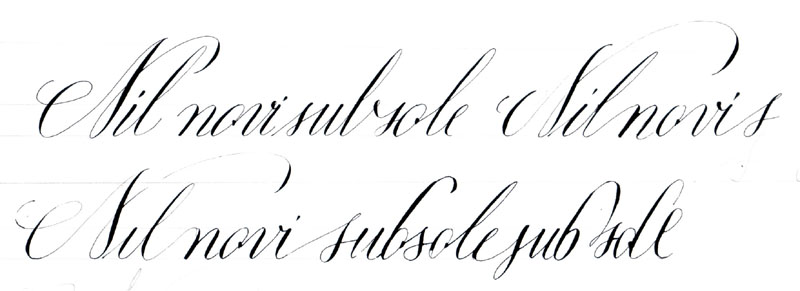 Nil novi sub sole Nil novi s
Nil novi sub sole sub sole